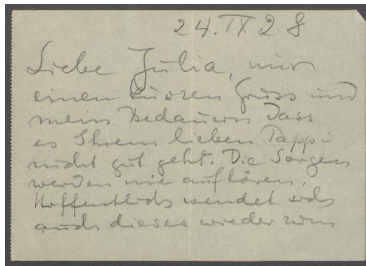 24.IX 28
Liebe Julia, nur
einen kurzen Gruss und
mein Bedauern dass
es Ihrem lieben Pappi
nicht gut geht. Die Sorgen
werden nie aufhören.
Hoffentlich wendet sich
auch dieses wieder zum